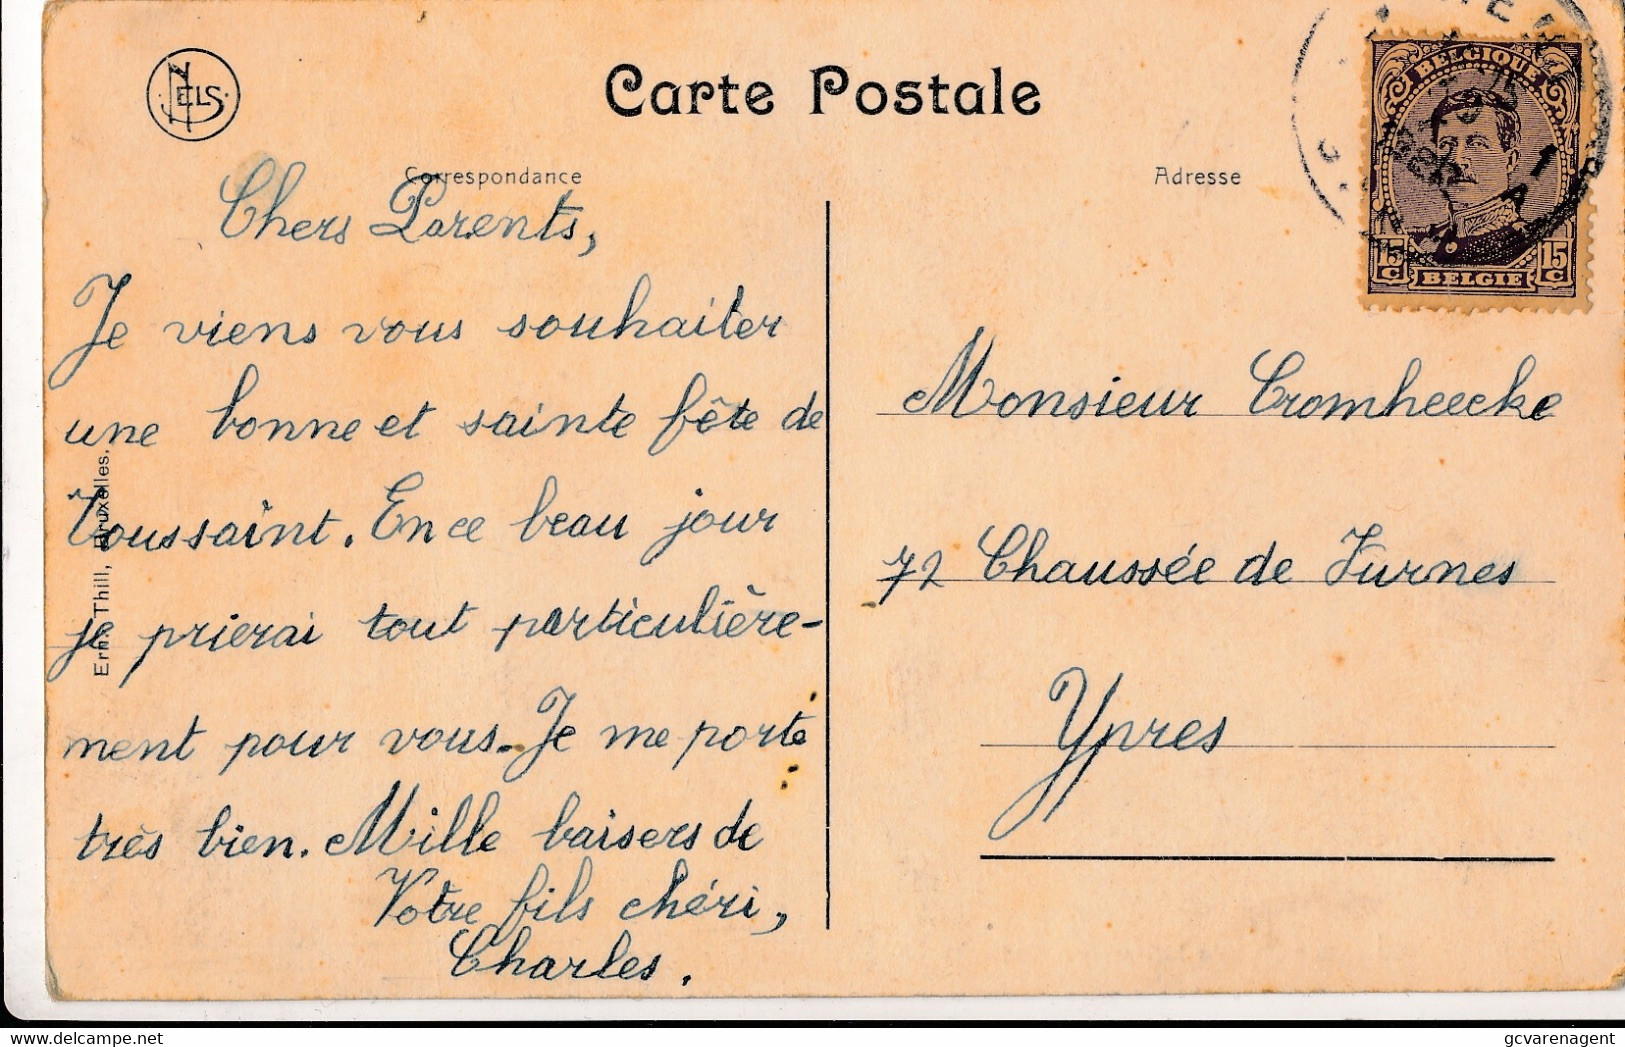 NELS
Carte Postale
Correspondance
Adresse
BELGIQUE
15 C
15 C
BELGIE
Chers Parents,
Je viens vous souhaiter
une bonne et sainte fête de
Toussaint. En ce beau jour
je prierai tout particulière-
ment pour vous. Je me porte
très bien. Mille baisers de
Votre fils chéri,
Charles.
Ern. Thill, Bruxelles.
Monsieur Cromheecke
72 Chaussée de Furnes
Ypres
gcvarenagent